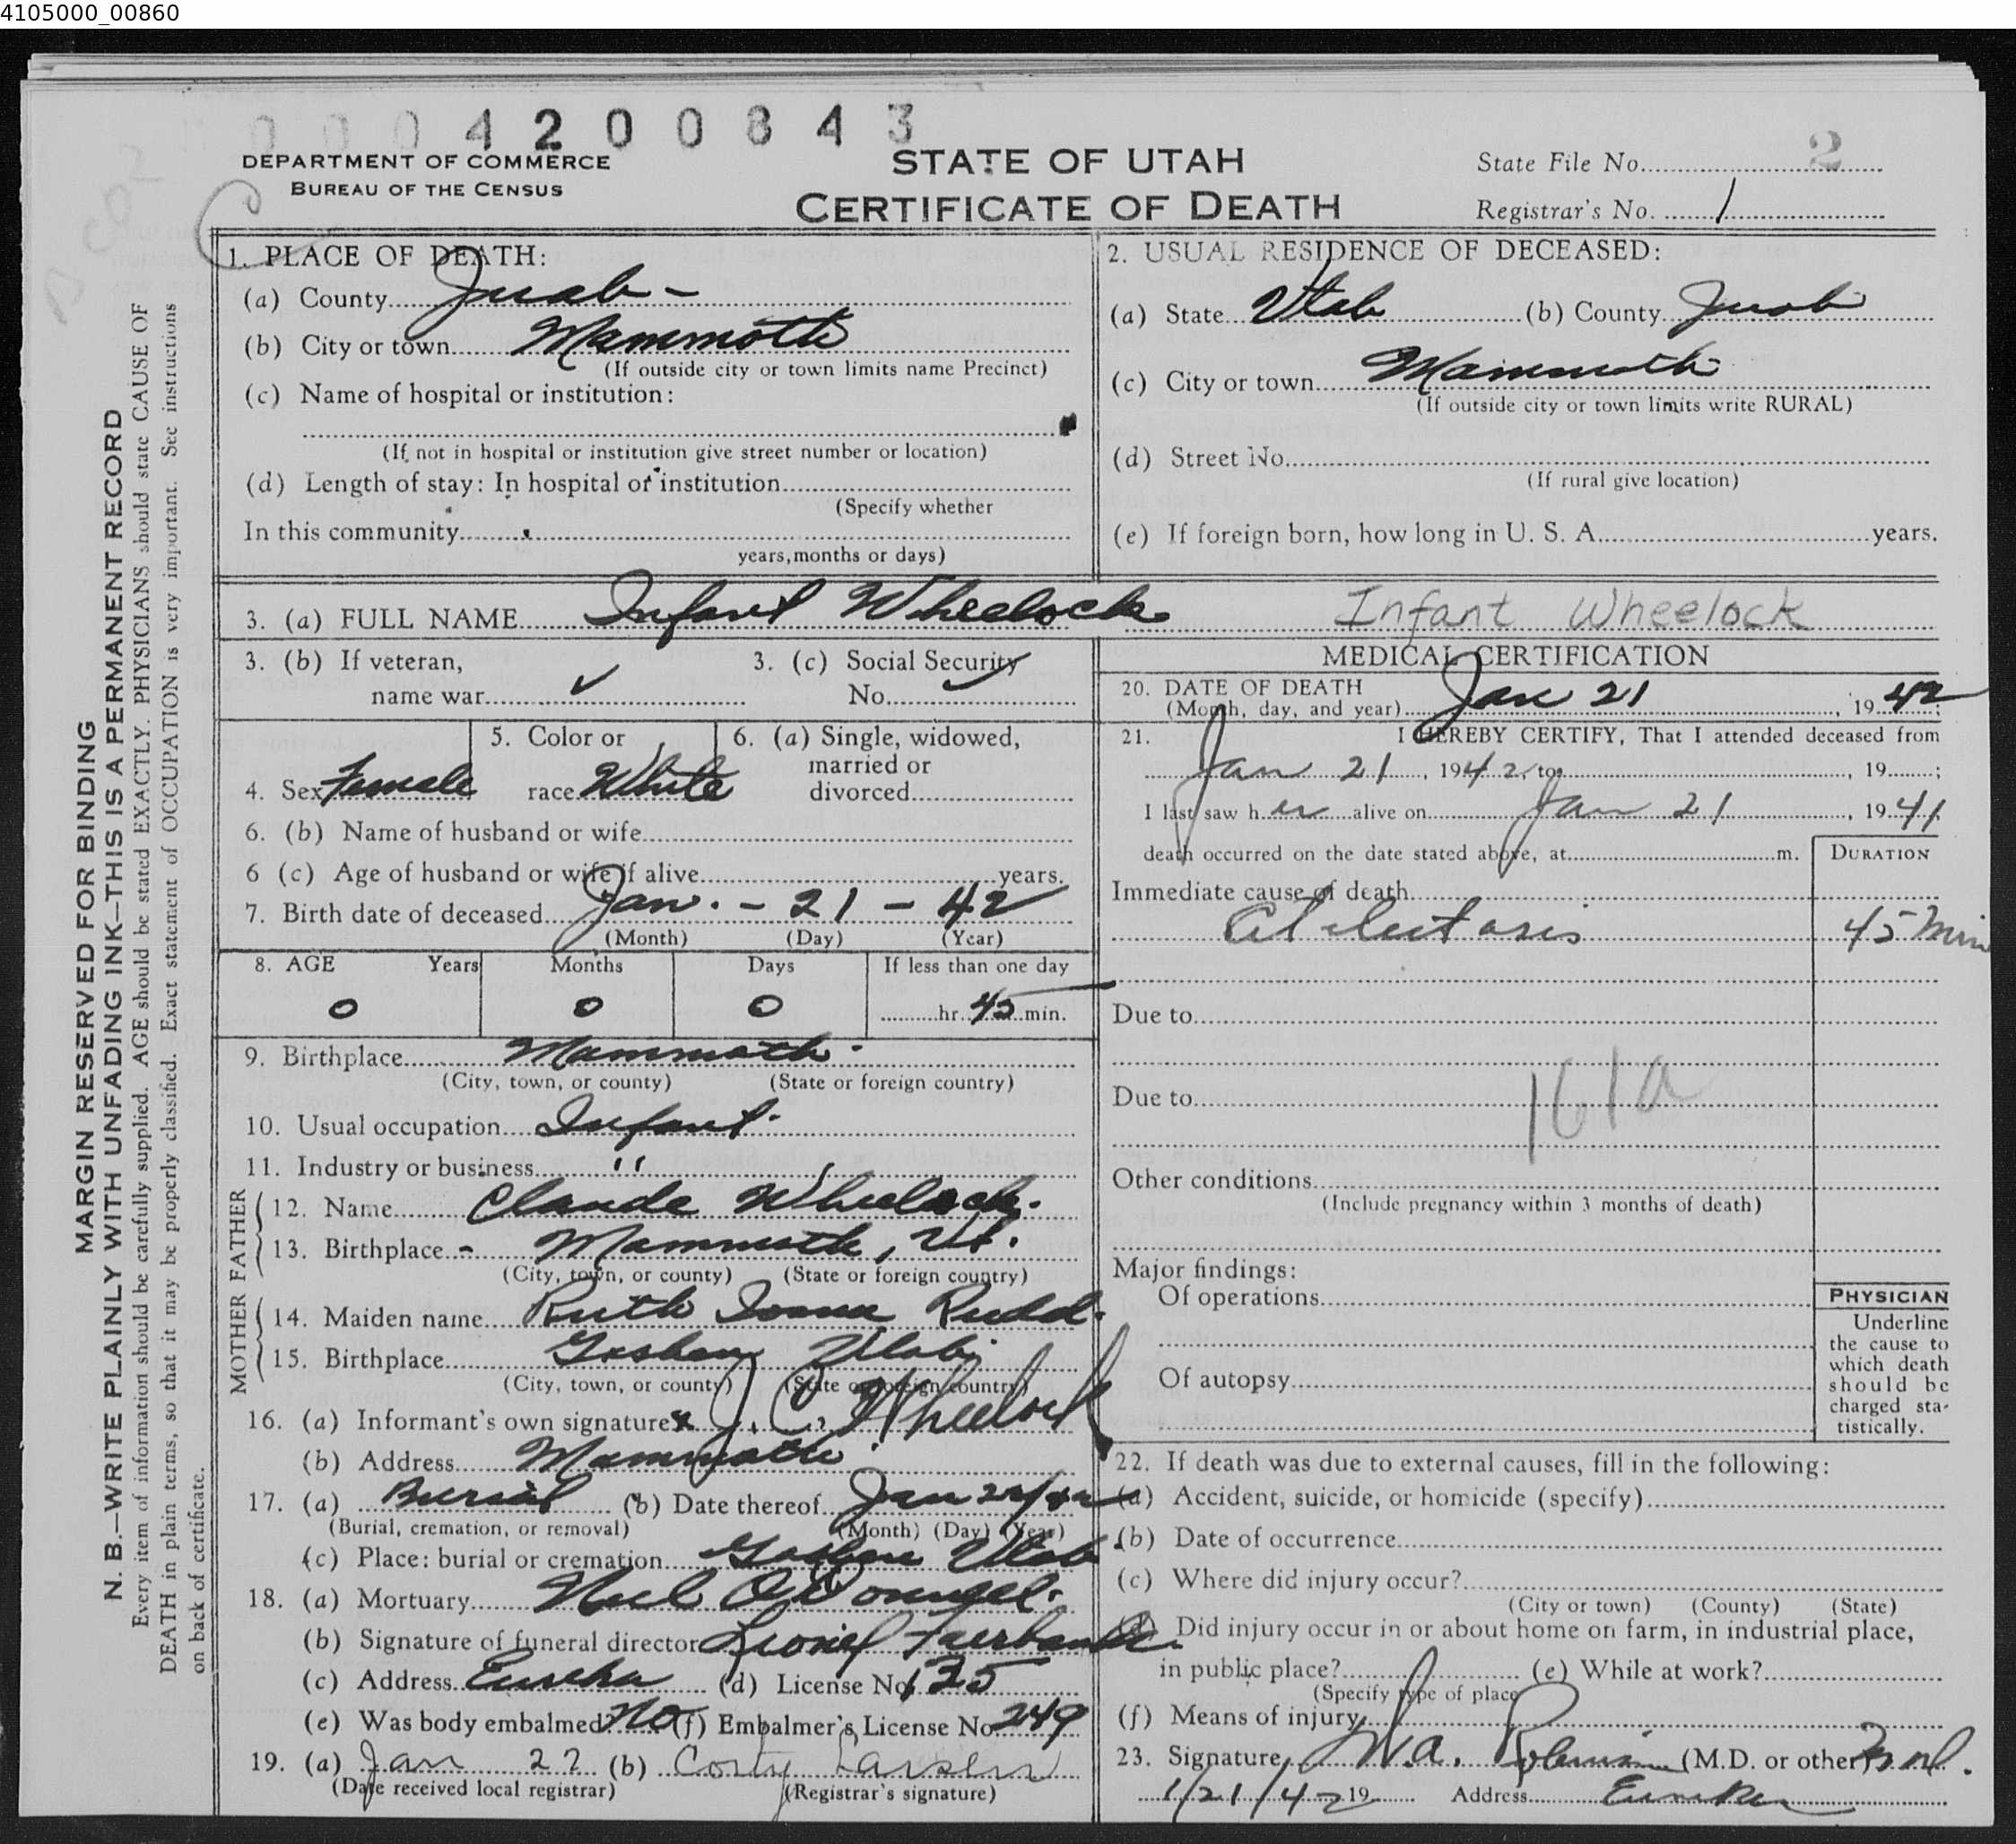 4105000_00860
0004200843
DEPARTMENT OF COMMERCE
BUREAU OF THE CENSUS
STATE OF UTAH
CERTIFICATE OF DEATH
State File No. 2
Registrar's No. 1
MARGIN RESERVED FOR BINDING
N. B.—WRITE PLAINLY WITH UNFADING INK—THIS IS A PERMANENT RECORD
Every item of information should be carefully supplied. AGE should be stated EXACTLY. PHYSICIANS should state CAUSE OF
DEATH in plain terms, so that it may be properly classified. Exact statement of OCCUPATION is very important. See instructions
on back of certificate.
1. PLACE OF DEATH:
(a) County Juab -
(b) City or town Mammoth
(If outside city or town limits name Precinct)
(c) Name of hospital or institution:
(If not in hospital or institution give street number or location)
(d) Length of stay: In hospital or institution
(Specify whether
In this community
years, months or days)
2. USUAL RESIDENCE OF DECEASED:
(a) State Utah (b) County Juab
(c) City or town Mammoth
(If outside city or town limits write RURAL)
(d) Street No.
(If rural give location)
(e) If foreign born, how long in U. S. A. years.
3. (a) FULL NAME Infant Wheelock Infant Wheelock
3. (b) If veteran,
name war ✓
3. (c) Social Security
No. ✓
4. Sex Female
5. Color or
race White
6. (a) Single, widowed,
married or
divorced
6. (b) Name of husband or wife
6 (c) Age of husband or wife if alive years.
7. Birth date of deceased Jan. - 21 - 42
(Month) (Day) (Year)
8. AGE Years Months Days If less than one day
0 0 0 hr. 45 min.
9. Birthplace Mammoth
(City, town, or county) (State or foreign country)
10. Usual occupation Infant
11. Industry or business "
FATHER
12. Name Claude Wheelock
13. Birthplace - Mammoth, Ut.
(City, town, or county) (State or foreign country)
MOTHER
14. Maiden name Ruth Rudd
15. Birthplace Goshen Utah
(City, town, or county) (State or foreign country)
16. (a) Informant's own signature x J. C. Wheelock
(b) Address Mammoth
17. (a) Burial (b) Date thereof Jan
(Burial, cremation, or removal) (Month) (Day) (Year)
(c) Place: burial or cremation Goshen Utah
18. (a) Mortuary
(b) Signature of funeral director Lionel Fairbanks
(c) Address Eureka (d) License No. 135
(e) Was body embalmed? No (f) Embalmer's License No. 249
19. (a) Jan 22 (b) Larsen
(Date received local registrar) (Registrar's signature)
MEDICAL CERTIFICATION
20. DATE OF DEATH
(Month, day, and year) Jan 21, 1942;
21. I HEREBY CERTIFY, That I attended deceased from
Jan 21, 1942, to , 19 ;
I last saw her alive on Jan 21, 1941
death occurred on the date stated above, at m.
DURATION
Immediate cause of death
Atelectasis 45 min
Due to
161a
Due to
Other conditions
(Include pregnancy within 3 months of death)
Major findings:
Of operations
Of autopsy
PHYSICIAN
Underline
the cause to
which death
should be
charged sta-
tistically.
22. If death was due to external causes, fill in the following:
(a) Accident, suicide, or homicide (specify)
(b) Date of occurrence
(c) Where did injury occur?
(City or town) (County) (State)
(d) Did injury occur in or about home on farm, in industrial place,
in public place? (e) While at work?
(Specify type of place)
(f) Means of injury
23. Signature W.A. (M.D. or other) M.D.
1/21/42 19 Address Eureka